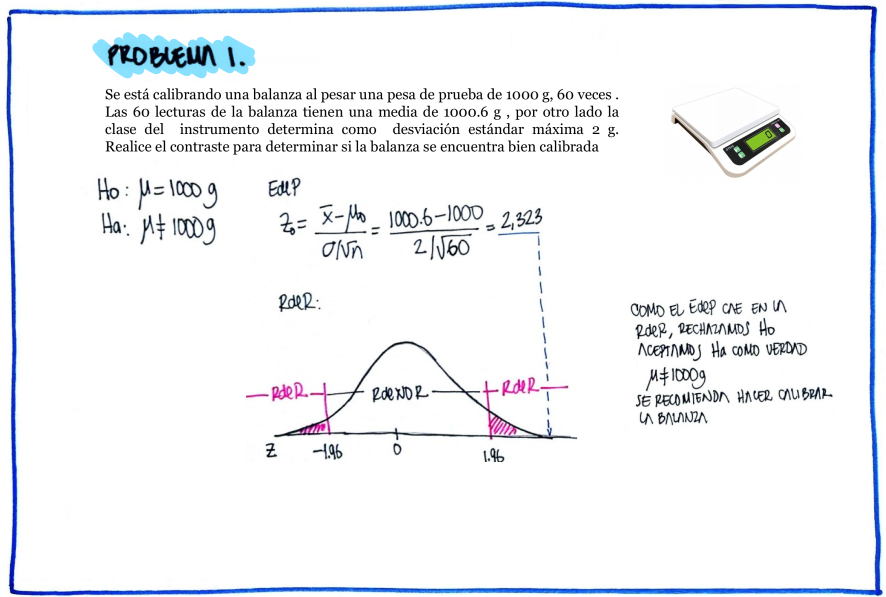 PROBLEMA 1.
Se está calibrando una balanza al pesar una pesa de prueba de 1000 g, 60 veces .
Las 60 lecturas de la balanza tienen una media de 1000.6 g , por otro lado la
clase del instrumento determina como desviación estándar máxima 2 g.
Realice el contraste para determinar si la balanza se encuentra bien calibrada
Ho : μ = 1000 g
Ha: μ ≠ 1000 g
EdeP
Z₀ = (x̄ - μ₀)/(σ/√n) = (1000.6 - 1000)/(2/√60) = 2,323
RdeR:
RdeR RdeNOR RdeR
Z -1.96 0 1.96
COMO EL EdeP CAE EN LA
RdeR, RECHAZAMOS Ho
ACEPTAMOS Ha COMO VERDAD
μ ≠ 1000 g
SE RECOMIENDA HACER CALIBRAR
LA BALANZA